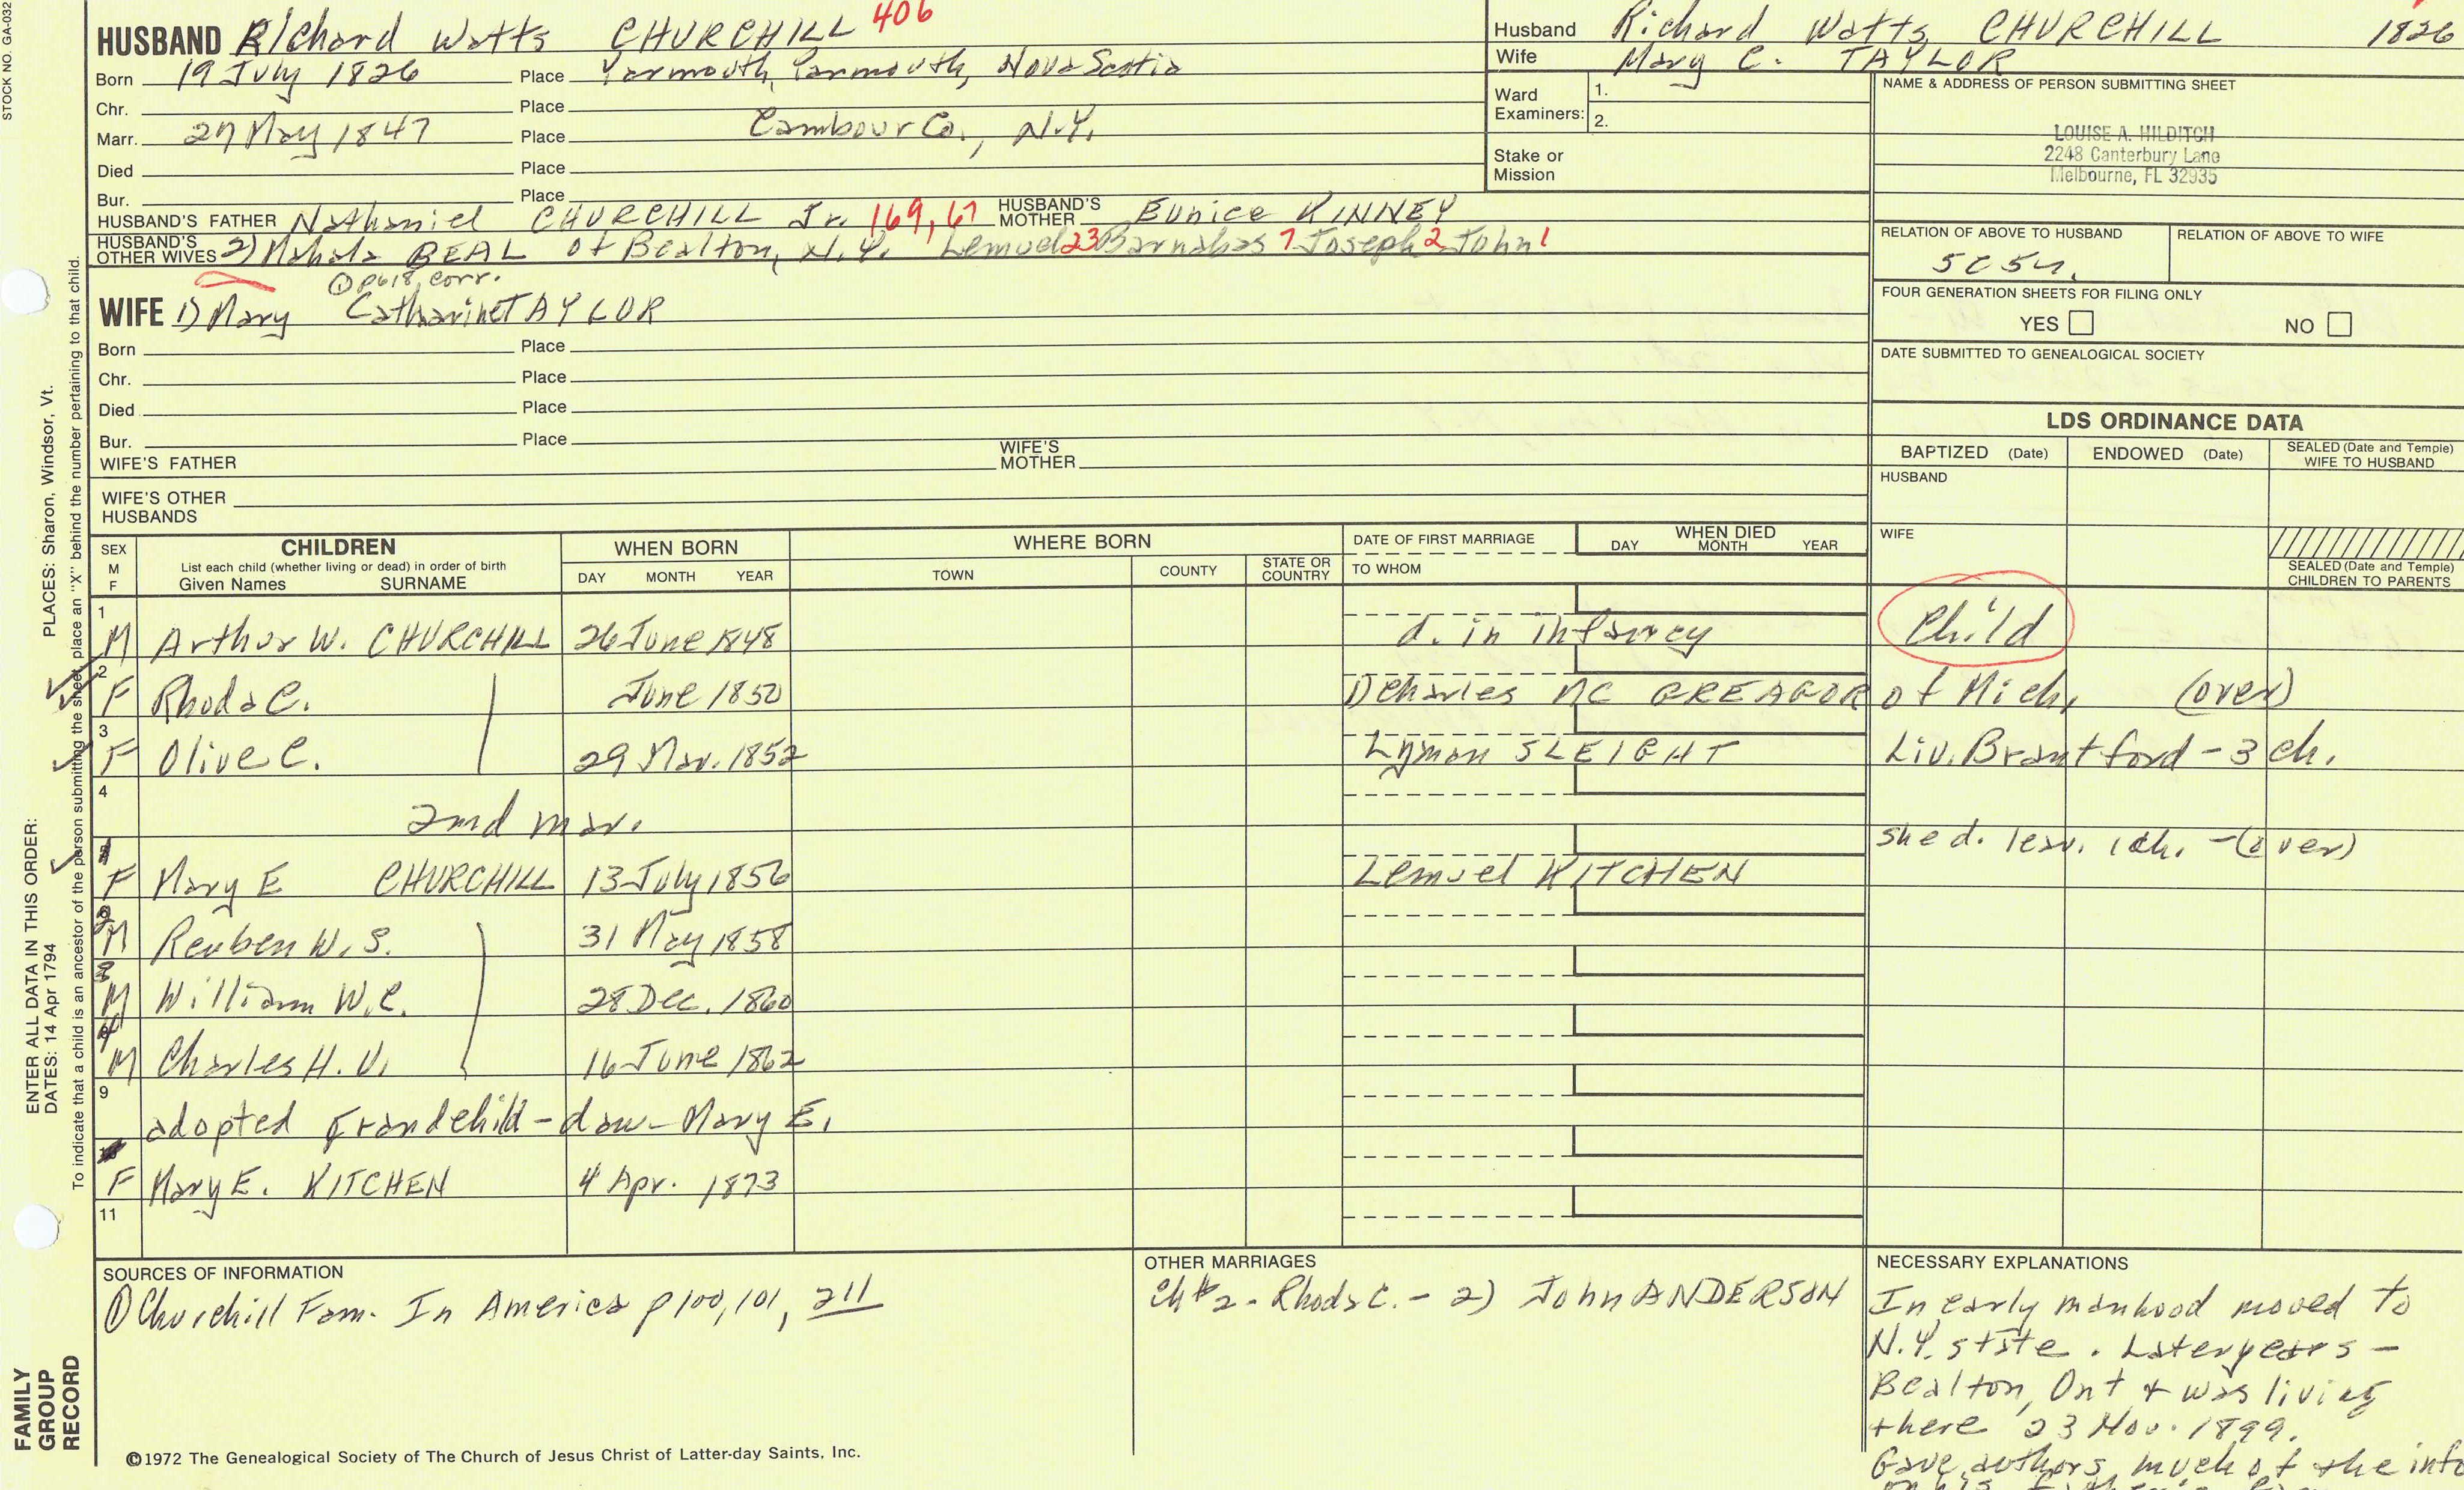 STOCK NO. GA-032
HUSBAND Richard Watts CHURCHILL 406
Born 19 July 1826 Place Yarmouth, Yarmouth, Nova Scotia
Chr. Place
Marr. 27 May 1847 Place Cambour Co., N.Y.
Died Place
Bur. Place
HUSBAND'S FATHER Nathaniel CHURCHILL Jr. 169, 67 HUSBAND'S MOTHER Eunice KINNEY
HUSBAND'S OTHER WIVES 2) Mahala BEAL of Bealton, N.Y. Lemuel 23 Barnabas 7 Joseph 2 John 1
① p618, corr.
WIFE 1) Mary Catharine TAYLOR
Born Place
Chr. Place
Died Place
Bur. Place
WIFE'S FATHER WIFE'S MOTHER
WIFE'S OTHER HUSBANDS
Husband Richard Watts CHURCHILL 1826
Wife Mary C. TAYLOR
Ward Examiners: 1.
2.
Stake or Mission
NAME & ADDRESS OF PERSON SUBMITTING SHEET
LOUISE A. HILDITCH
2248 Canterbury Lane
Melbourne, FL 32935
RELATION OF ABOVE TO HUSBAND RELATION OF ABOVE TO WIFE
5C5r.
FOUR GENERATION SHEETS FOR FILING ONLY
YES NO
DATE SUBMITTED TO GENEALOGICAL SOCIETY
LDS ORDINANCE DATA
BAPTIZED (Date) ENDOWED (Date) SEALED (Date and Temple) WIFE TO HUSBAND
HUSBAND
WIFE
SEALED (Date and Temple) CHILDREN TO PARENTS
SEX M F
CHILDREN
List each child (whether living or dead) in order of birth
Given Names SURNAME
WHEN BORN
DAY MONTH YEAR
WHERE BORN
TOWN COUNTY STATE OR COUNTRY
DATE OF FIRST MARRIAGE
TO WHOM
WHEN DIED
DAY MONTH YEAR
1 M Arthur W. CHURCHILL 26 June 1848 d. in infancy Child
2 F Rhoda C. June 1850 1) Charles MC GREAGOR of Mich, (over)
3 F Olive C. 29 Mar. 1852 Lyman SLEIGHT Liv. Brantford - 3 ch.
4 2nd mar.
she d. leav. 1 ch. - (over)
1 F Mary E CHURCHILL 13 July 1856 Lemuel KITCHEN
2 M Reuben W. S. 31 May 1858
3 M William W. C. 28 Dec. 1860
4 M Charles H. U. 16 June 1862
9 adopted Grandchild - dau - Mary E.
F Mary E. KITCHEN 4 Apr. 1873
11
SOURCES OF INFORMATION
① Churchill Fam. In America p 100, 101, 211
OTHER MARRIAGES
Ch # 2 - Rhoda C. - 2) John ANDERSON
NECESSARY EXPLANATIONS
In early manhood moved to
N.Y. state. Later years -
Bealton, Ont & was living
there 23 Nov. 1899.
Gave authors much of the info
©1972 The Genealogical Society of The Church of Jesus Christ of Latter-day Saints, Inc.
PLACES: Sharon, Windsor, Vt.
ENTER ALL DATA IN THIS ORDER:
DATES: 14 Apr 1794
To indicate that a child is an ancestor of the person submitting the sheet, place an "X" behind the number pertaining to that child.
FAMILY
GROUP
RECORD